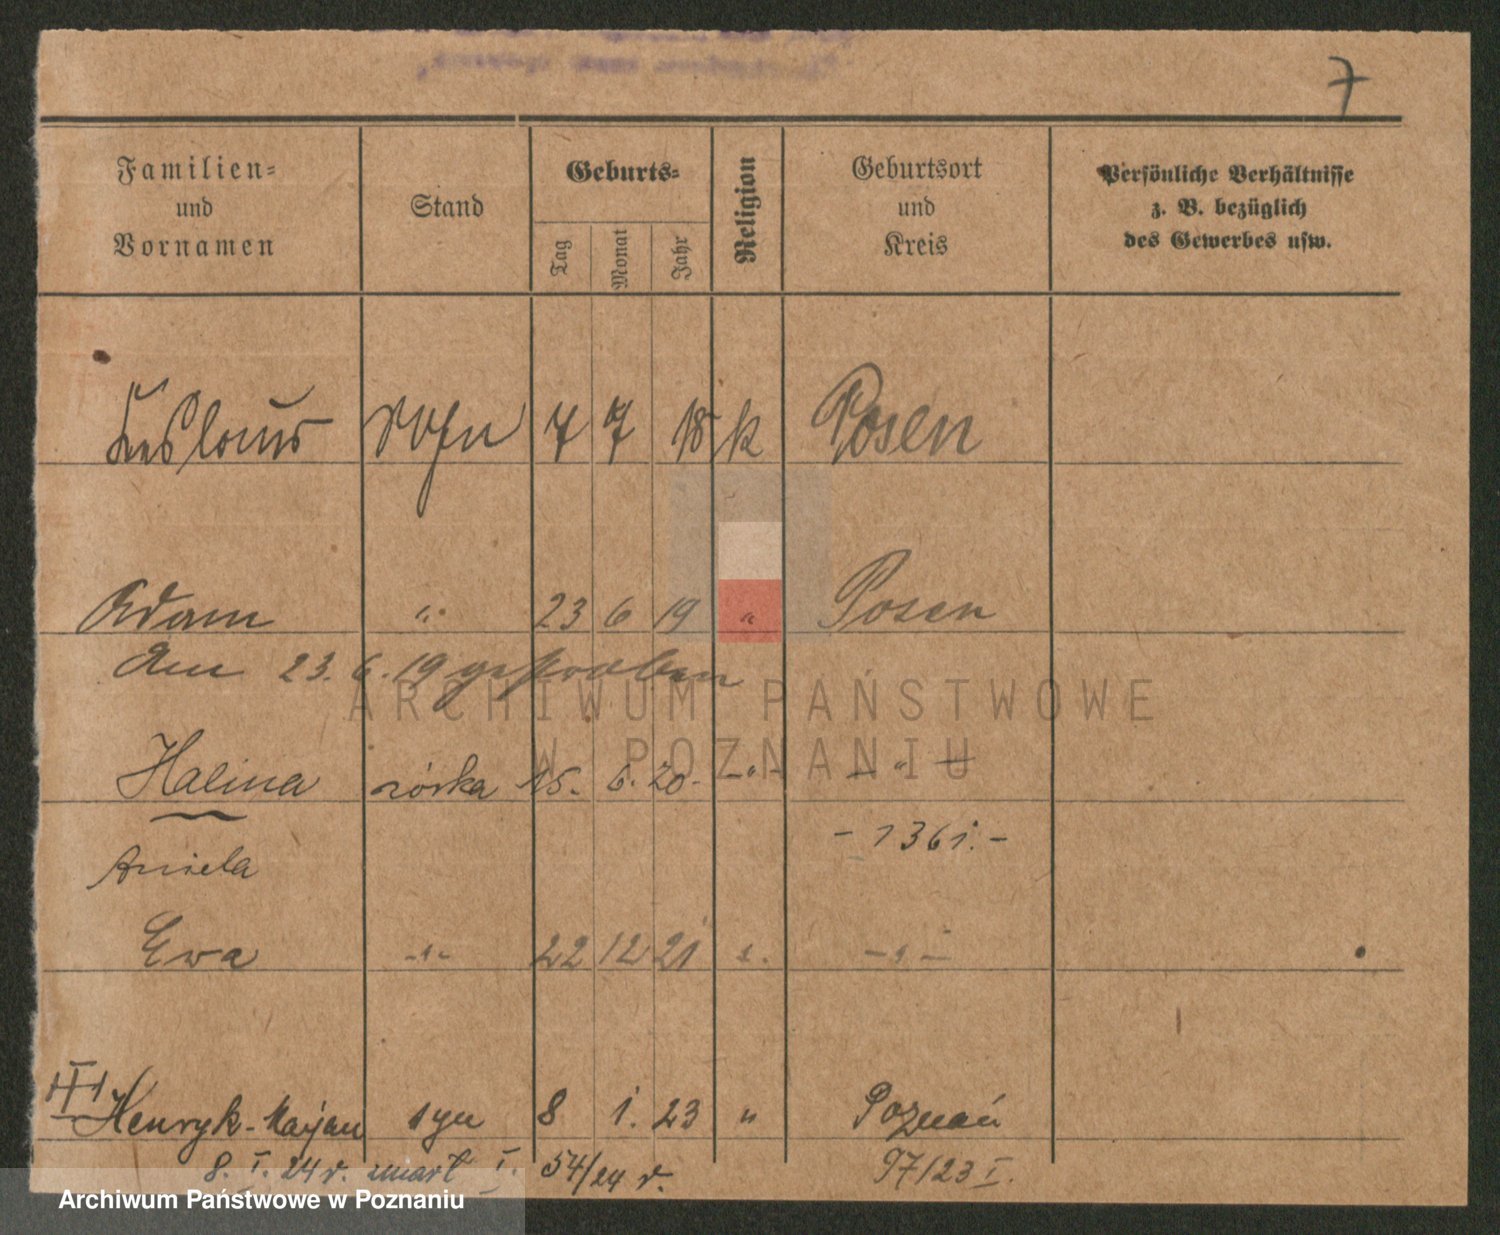 7
Familien=
und
Vornamen
Stand
Geburts=
Tag
Monat
Jahr
Religion
Geburtsort
und
Kreis
Persönliche Verhältnisse
z. B. bezüglich
des Gewerbes usw.
Sohn 7 7 18 k Posen
Adam " 23 6 19 " Posen
Am 23.6.19 gestorben
ARCHIWUM PAŃSTWOWE
W POZNANIU
Halina córka 15. 6. 20. -"- -"-
- 1361. -
Aniela
Ewa -"- 22 12 21 " -"-
Henryk-Marjan syn 8 1. 23 " Poznań
8. I. 24 r. zmarł I. 54/24 r. 97/23 I.
Archiwum Państwowe w Poznaniu